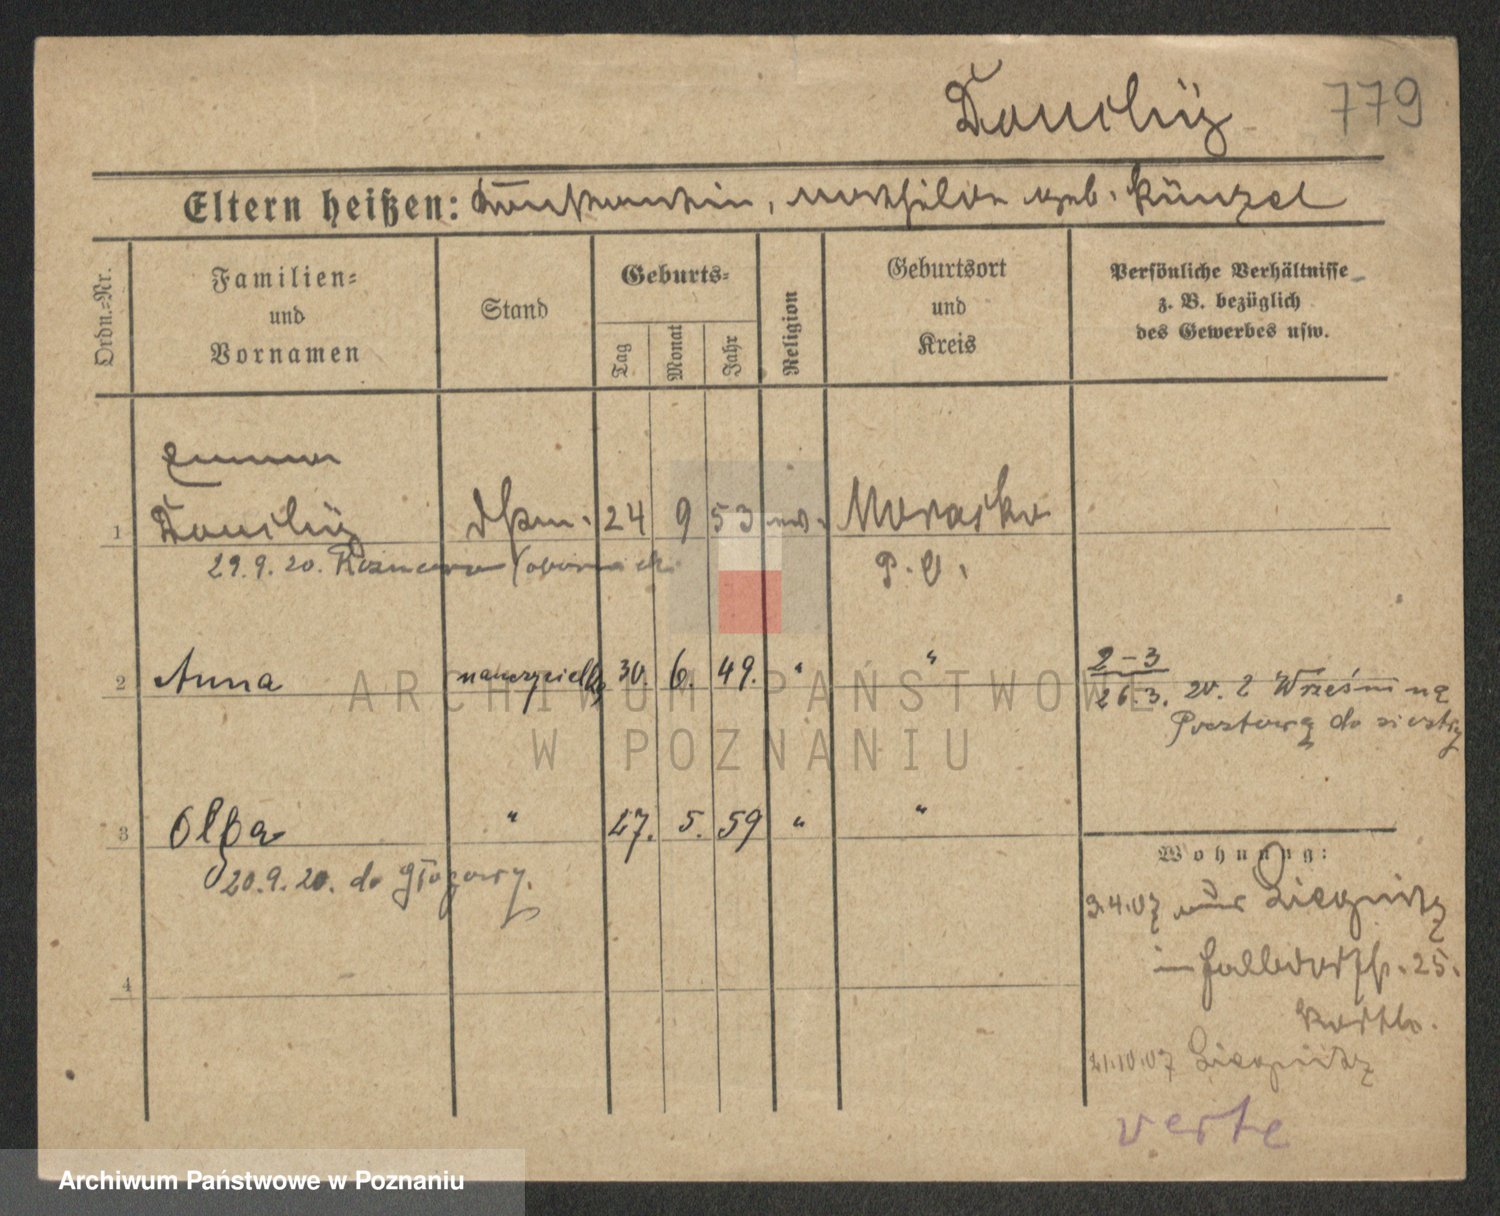 779
Eltern heißen: Konstantin, Mathilde geb. Künzel
Ordn.=Nr.
Familien=
und
Vornamen
Stand
Geburts=
Tag
Monat
Jahr
Religion
Geburtsort
und
Kreis
Persönliche Verhältnisse
z. B. bezüglich
des Gewerbes usw.
Emma
1 24 9 53 ev. Morasko
29.9.20.
P. O.
2 Anna nauczycielka 30. 6. 49. " "
2-3
26.3. 20. z Wrześni na
Pocztową do siostry
3 Olga " 27. 5. 59 " "
20.9.20. do Głogowy.
Wohnung:
3.4.07 aus Liegnitz
in 25.
21.10.07 Liegnitz
4
verte
ARCHIWUM PAŃSTWOWE
W POZNANIU
Archiwum Państwowe w Poznaniu